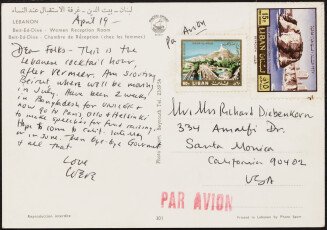 لبنان - بيت الدين - غرفة الاستقبال عند النساء
LEBANON
Beit-Ed-Dine - Women Reception Room
Beit-Ed-Dine - Chambre de Réception (chez les femmes)
April 19 -
Dear Folks - This is the
Lebanese cocktail hour,
after Vermeer. Am scouting
Beirut where will be moving
in July. Have been 2 weeks
in Bangladesh for UNICEF &
now go to Paris, Oslo & Helsinki
to make speeches for fund raising.
Hope to come to Calif. late May
or in June. Then bye-bye Government
& all that
Love
Par Avion
LIBAN
LIBAN
Mr & Mrs Richard Diebenkorn
334 Amalfi Dr.
Santa Monica
California 90402
USA
PAR AVION
Reproduction interdite
301
Printed in Lebanon by